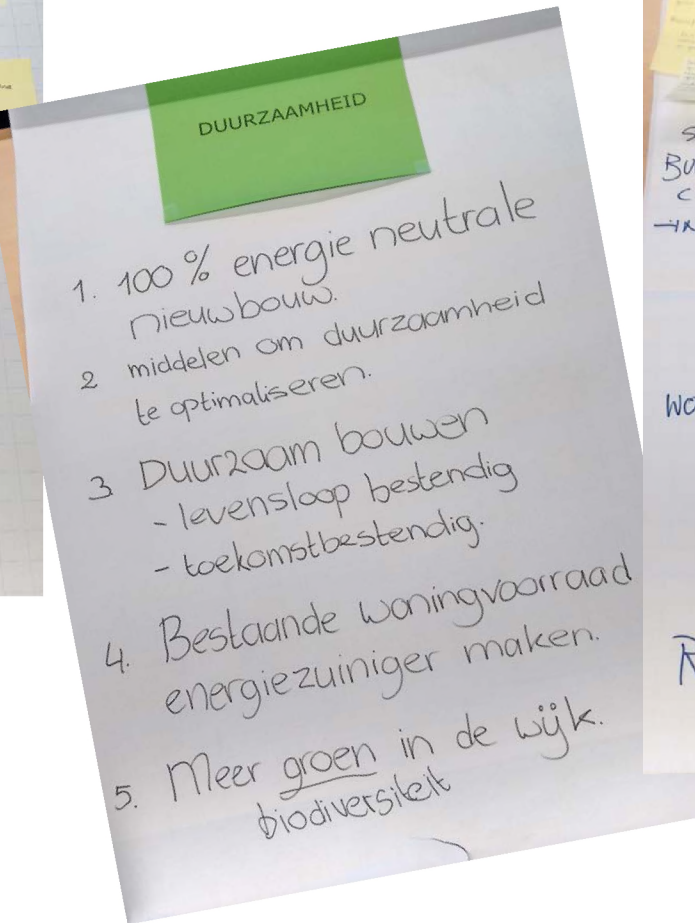 DUURZAAMHEID
1. 100% energie neutrale
nieuwbouw.
2 middelen om duurzaamheid
te optimaliseren.
3 Duurzaam bouwen
- levensloop bestendig
- toekomstbestendig.
4. Bestaande woningvoorraad
energiezuiniger maken.
5. Meer groen in de wijk.
biodiversiteit